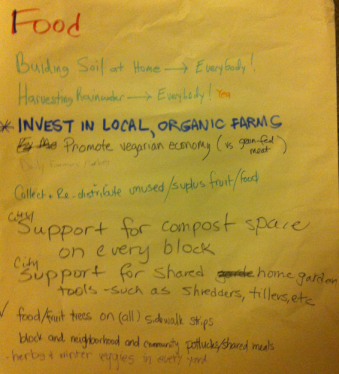 Food
Building Soil at Home → Everybody!
Harvesting Rainwater → Everybody! Yea
* INVEST IN LOCAL, ORGANIC FARMS
Promote vegarian economy (vs grain-fed
meat)
Collect & Re-distribute unused/suplus fruit/food
City
Support for compost space
on every block
City
Support for shared home garden
tools - such as shredders, tillers, etc
✓ food/fruit trees on (all) sidewalk strips
block and neighborhood and community potlucks/shared meals
- herbs & winter veggies in every yard